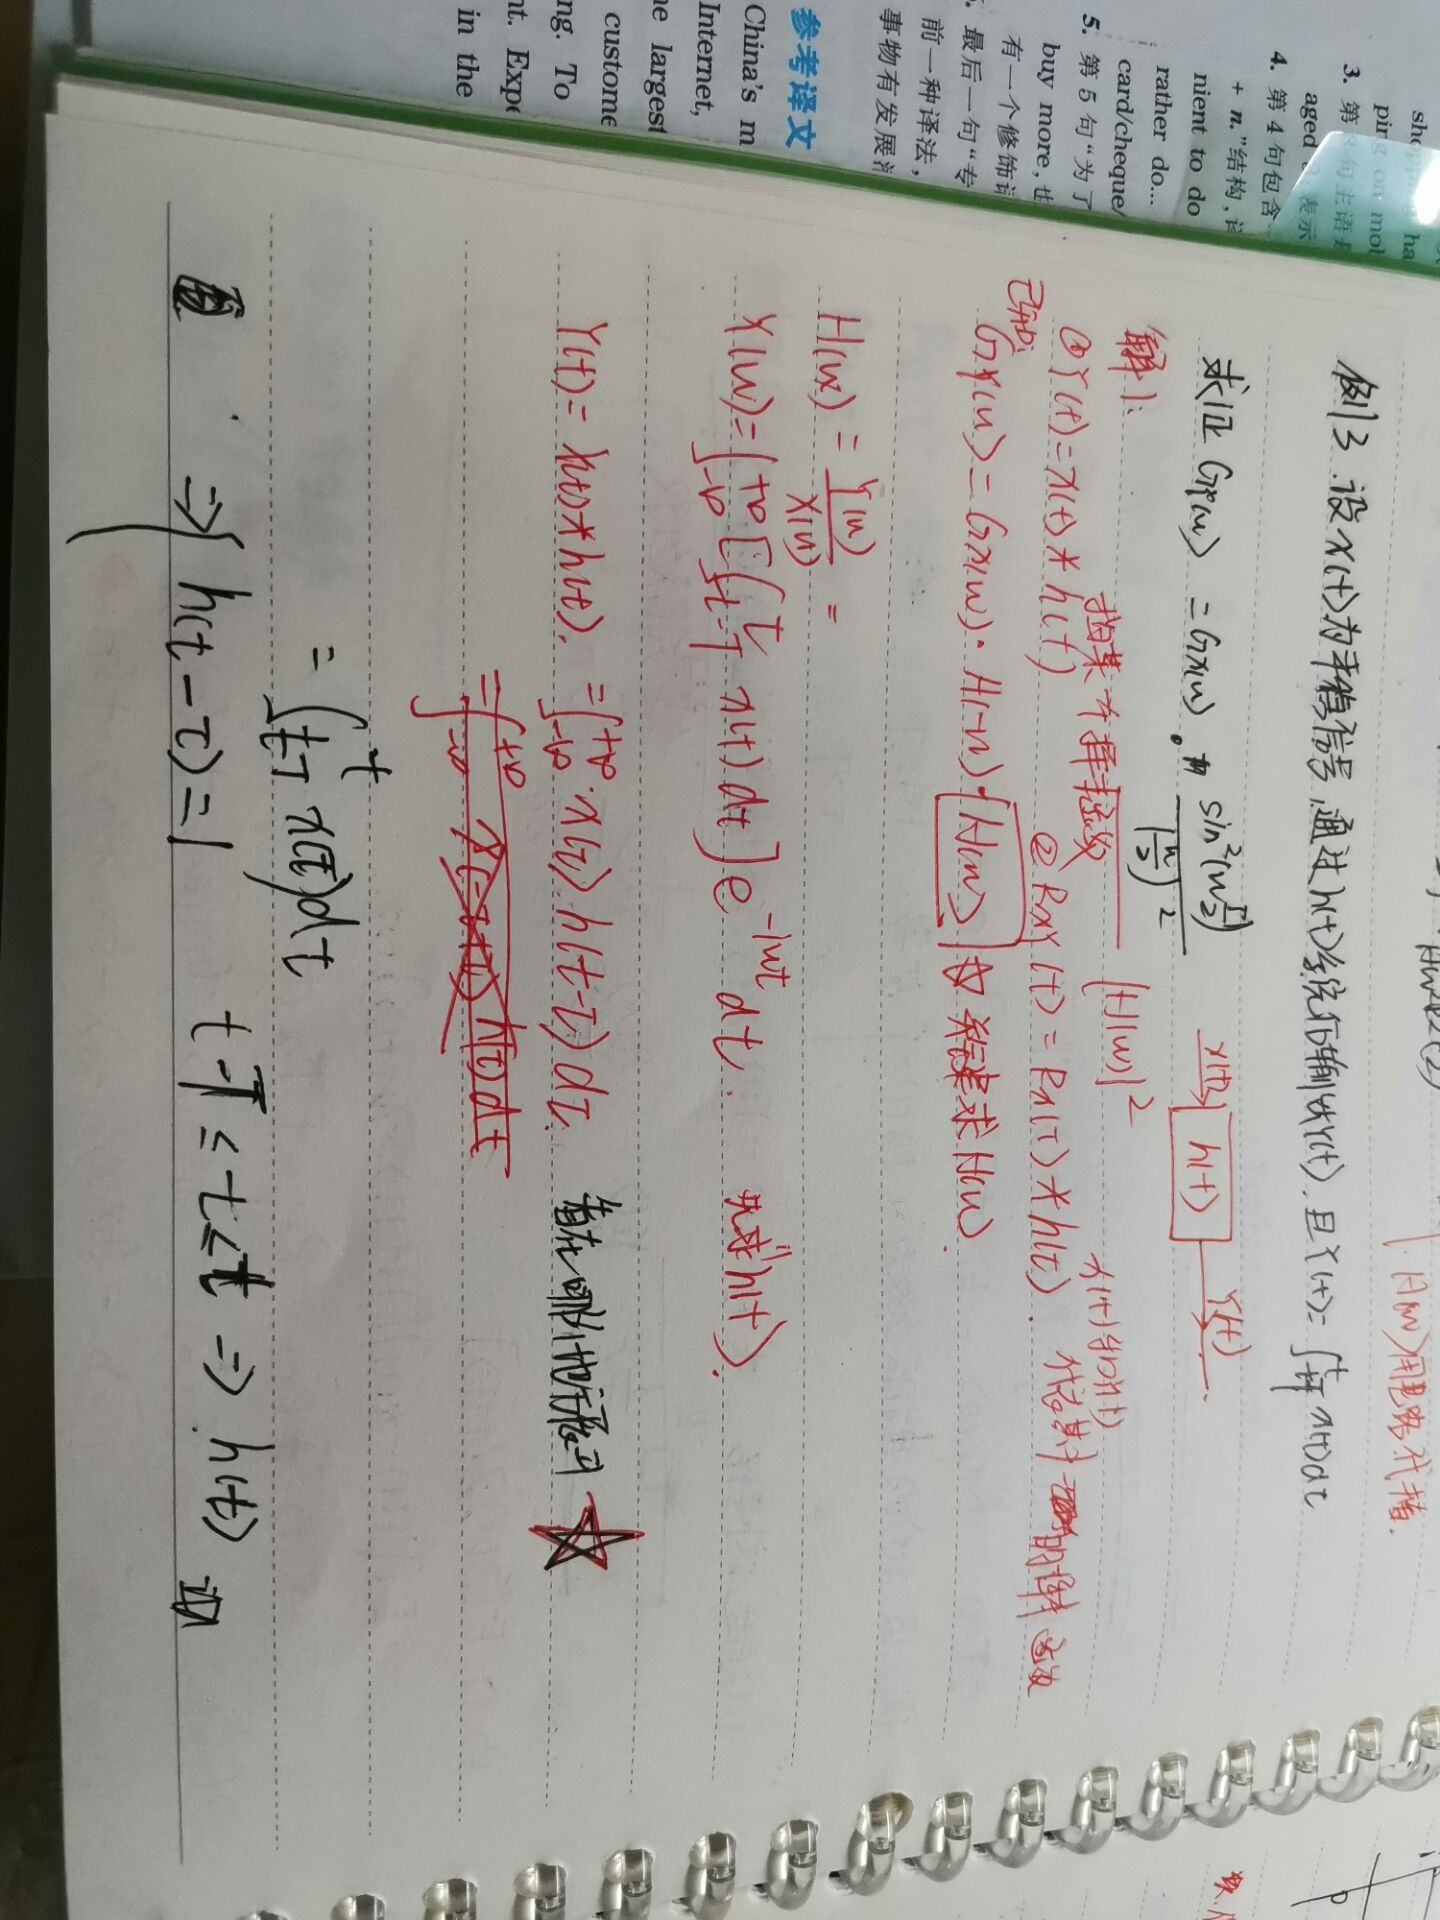 shopping ha
ping on mol
3. 第3句主语是
aged
表示
4. 第4句包含一
+ n."结构,译
nient to do
rather do...
card/cheque/
5. 第5句“为了
buy more,也
有一个修饰语
. 最后一句“专
前一种译法,
事物有发展
参考译文
China's m
Internet,
he largest
custome
ng. To
nt. Expe
in the
H(w)用电路代替.
例3.设x(t)为平稳信号,通过h(t)系统后输出Y(t).且Y(t)=∫_{t-T}^{t} x(τ)dτ
求证 GY(w) = GX(w) · sin²(wT/2)/(w/2)²
x(t) h(t) Y(t)
|H(w)|²
解1:
指某个样本函数
x(t)和Y(t)
①Y(t)=x(t)*h(t)
②RXY(τ)=RX(τ)*h(τ).
代表某个
的样本函数
已知:
GY(w)=GX(w)·H(-w)·H(w) ☆ 关键要求H(w).
H(w) = Y(w)/X(w) =
Y(w)=∫_{-∞}^{+∞}[∫_{t-T}^{t} x(t)dt]e^{-jwt}dt. 先求h(t).
Y(t)=x(t)*h(t). =∫_{-∞}^{+∞}·x(τ).h(t-τ)dτ. 看在哪个地方展开 ☆
=∫_{-∞}^{+∞} h(τ)dτ
=∫_{t-T}^{t} x(τ)dτ
⇒{ h(t-τ)=1 t-T≤τ≤t ⇒ h(t)